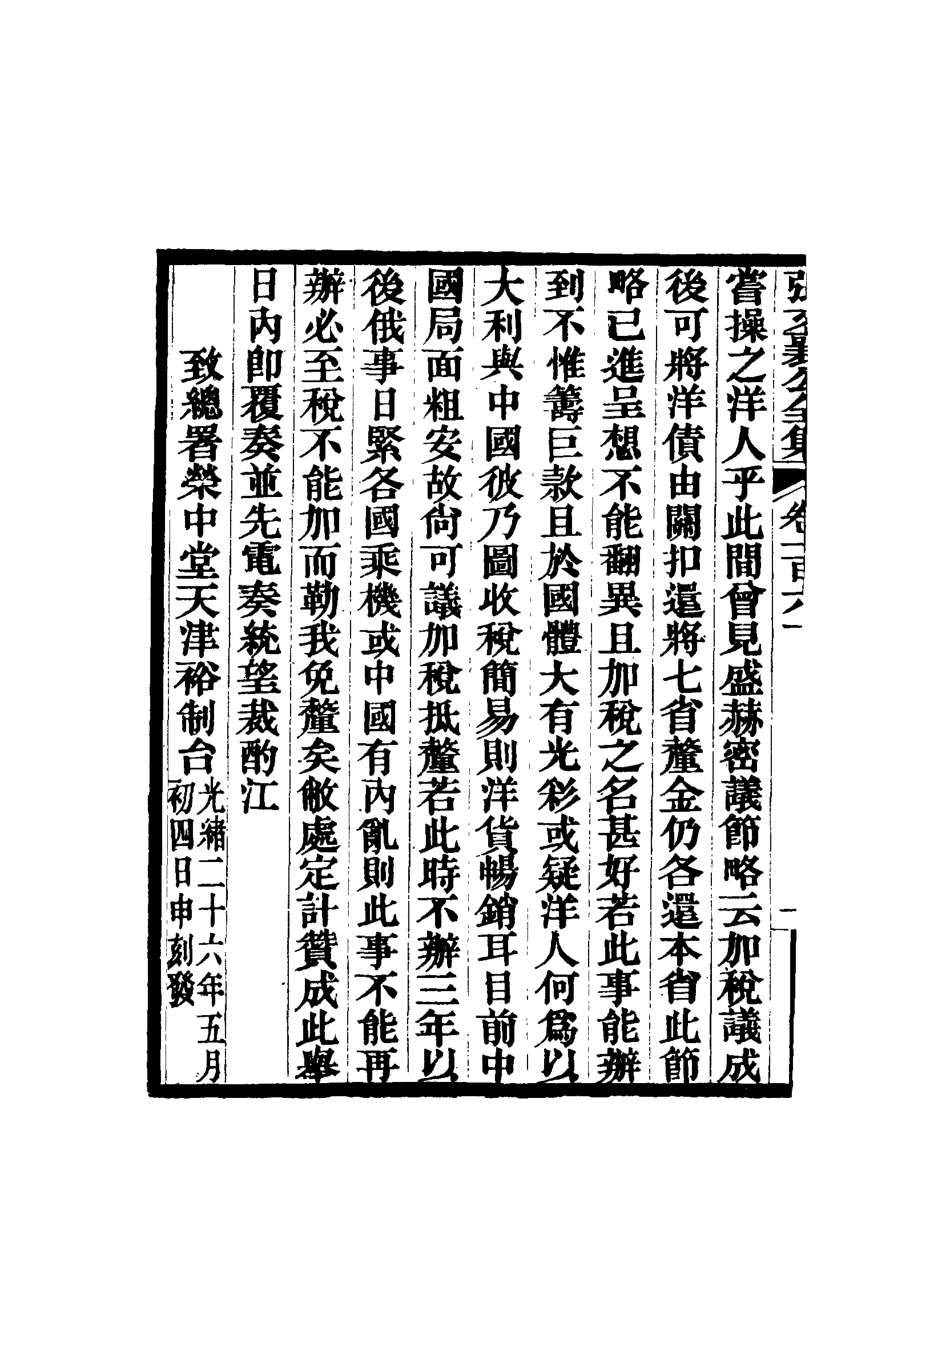 張文襄公全集 卷一百六十 一
嘗操之洋人乎此間曾見盛赫密議節略云加稅議成
後可將洋債由關扣還將七省釐金仍各還本省此節
略已進呈想不能翻異且加稅之名甚好若此事能辦
到不惟籌巨款且於國體大有光彩或疑洋人何爲以
大利與中國彼乃圖收稅簡易則洋貨暢銷耳目前中
國局面粗安故尙可議加稅抵釐若此時不辦三年以
後俄事日緊各國乘機或中國有內亂則此事不能再
辦必至稅不能加而勒我免釐矣敝處定計贊成此舉
日內卽覆奏並先電奏統望裁酌江
致總署榮中堂天津裕制台光緒二十六年五月
初四日申刻發